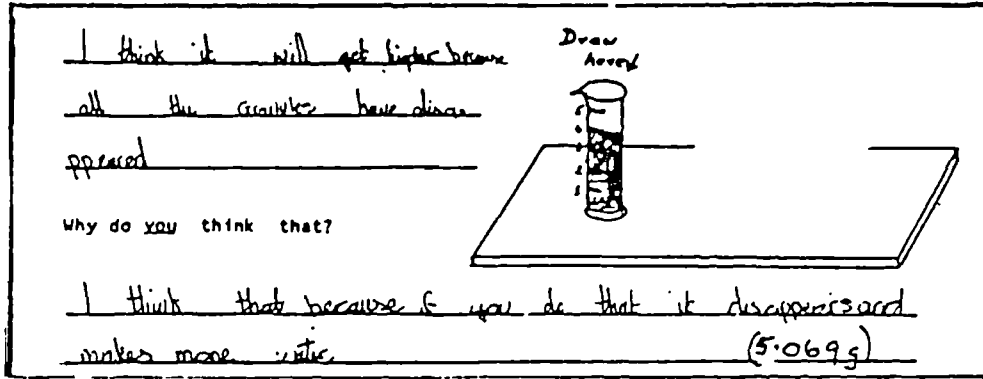 I think it will get higher because
all the granules have disa
ppeared
Draw
Why do you think that?
5
4
3
2
1
I think that because if you do that it disappears and
makes more
(5.069g)